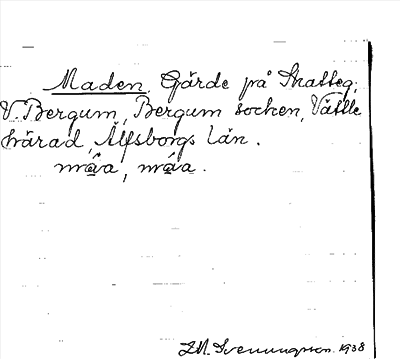 Maden. Gärde på Skatteg.
V. Bergum, Bergum socken, Vättle
härad, Älfsborgs län.
Svenungsson. 1938